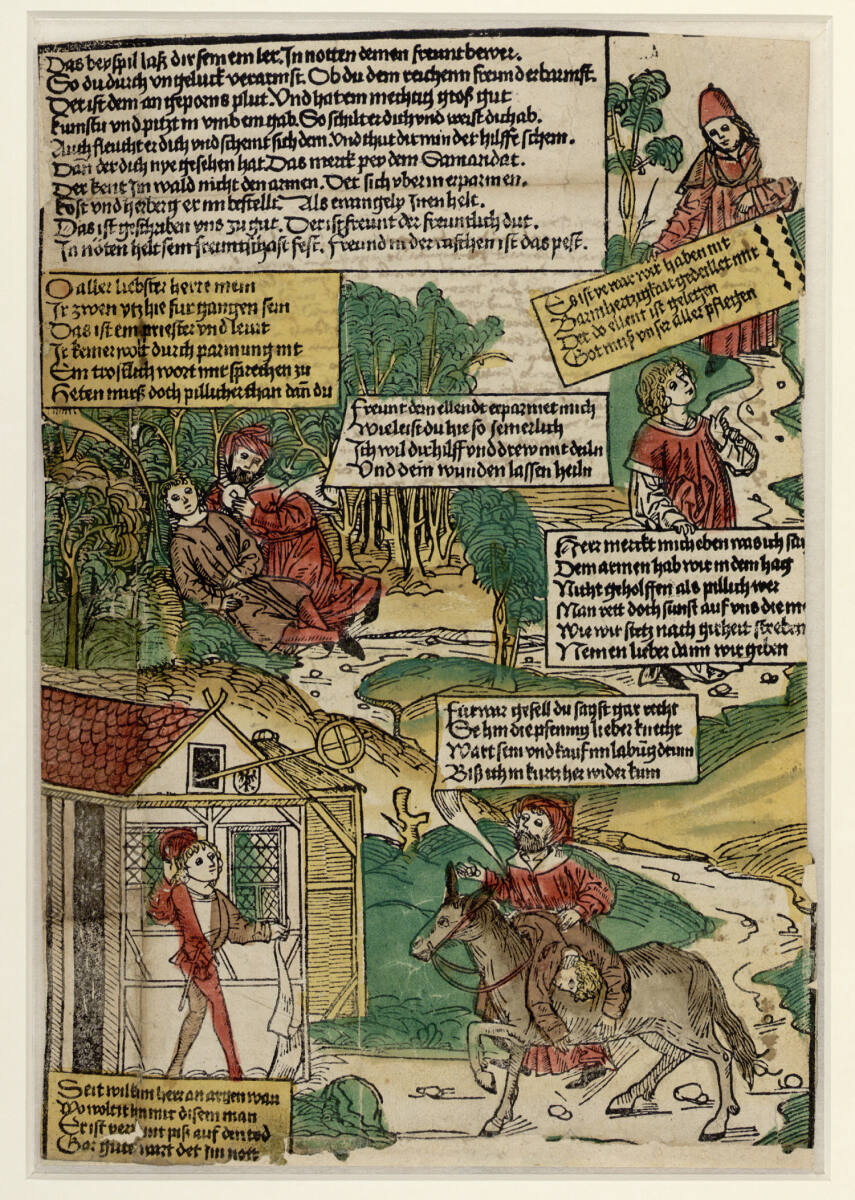 Das beyspil laß dir sein ein ler. In notten deinen freunt bewer.
So du durch ungeluck verarmst. Ob du dem reichenn freund erbarmst.
Der ist dem an geporns plut. Und hat ein mechtig groß gut
kumstu und pitzt in umb ein gab. So schilt er dich und weist dich ab.
Auch fleucht er dich und schemt sich dein. und thut dir min der hilffe schein.
Dan der dich nye gesehen hat. Das merck pey dem Samaritat.
Der kent im wald nicht den armen. Der sich uber in erparmen.
kost und herberg er im bestellt. Als ewangely Inen helt.
Das ist geschriben uns zu gut. Der ist freunt der freuntlich dut.
In nöten helt sein freuntschaft fest. Freund in der taschen ist das pest.
Es ist ye war wir haben nit
Barmhertzigkait gedeillet mit
Der do ellent ist gelegen
Got muß unser aller pflegen
O aller liebster herre mein
Ir zwen ytz hie fur gangen sein
Das ist ein priester und levit
Ir keiner wolt durch parmung nit
Ein trostlich wort mit sprechen zu
Heten muß doch pillicher than dan du
Freunt dein ellendt erparmet mich
Wie leist du hie so jemerlich
Ich wil dir hilff und drew mit deiln
Und dein wunden lassen heiln
Herr merckt mich eben was ich sa
Dem armen hab wir in dem hag
Nicht geholffen als pillich wer
Man rett doch sunst auf uns die m
Wie wir stetz nach girheit streben
Nemen lieber dann wir geben
Fur war gesell du sagst gar recht
Se hin die pfennig lieber knecht
Wart sein und kauf im labung drum
Biß ich in kurtz her wider kum
Seit wilkum herr an argen wan
Wo wolt ir hin mit disem man
Er ist ver nt piß auf den tod
Gar gute wart det im nott